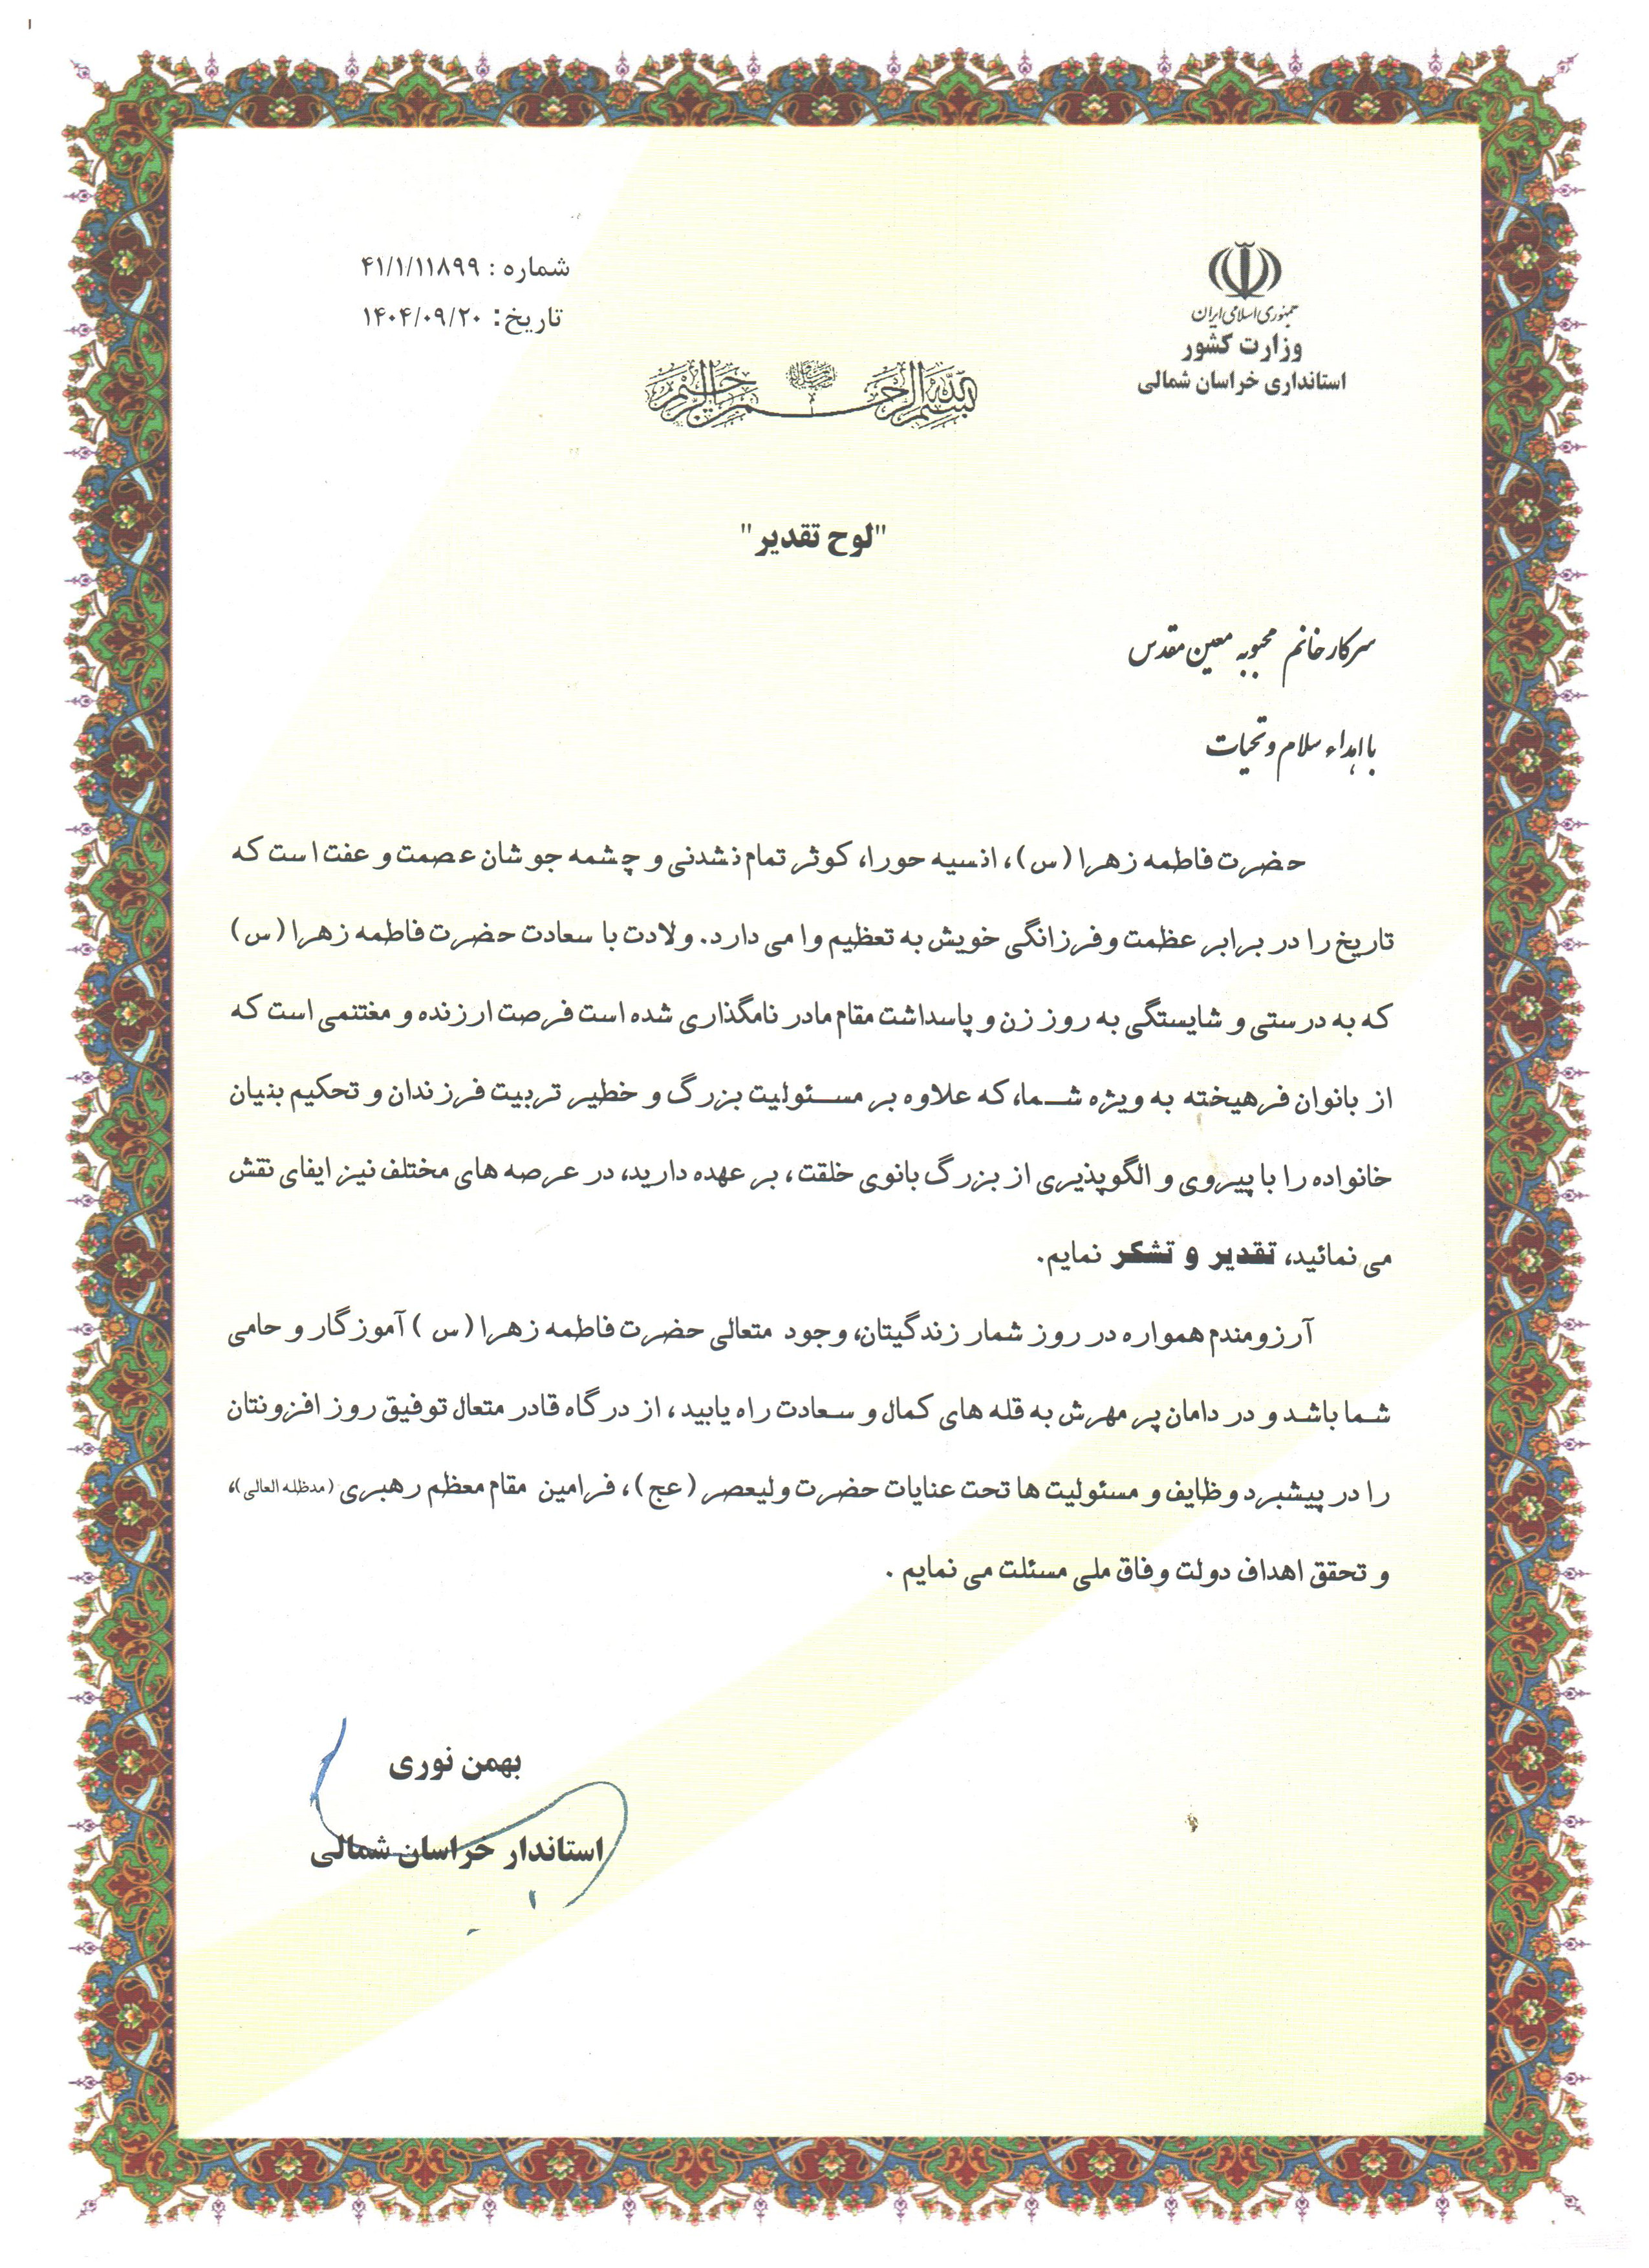 جمهوری اسلامی ایران
وزارت کشور
استانداری خراسان شمالی
شماره : ۴۱/۱/۱۱۸۹۹
تاریخ: ۱۴۰۴/۰۹/۲۰
بسم الله الرحمن الرحیم
"لوح تقدیر"
سرکار خانم محبوبه معین مقدس
با اهداء سلام و تحیات
حضرت فاطمه زهرا (س)، انسیه حورا، کوثر تمام نشدنی و چشمه جوشان عصمت و عفت است که
تاریخ را در برابر عظمت و فرزانگی خویش به تعظیم وا می دارد. ولادت با سعادت حضرت فاطمه زهرا (س)
که به درستی و شایستگی به روز زن و پاسداشت مقام مادر نامگذاری شده است فرصت ارزنده و مغتنمی است که
از بانوان فرهیخته به ویژه شما، که علاوه بر مسئولیت بزرگ و خطیر تربیت فرزندان و تحکیم بنیان
خانواده را با پیروی و الگوپذیری از بزرگ بانوی خلقت، بر عهده دارید، در عرصه های مختلف نیز ایفای نقش
می نمائید، تقدیر و تشکر نمایم.
آرزومندم همواره در روز شمار زندگیتان، وجود متعالی حضرت فاطمه زهرا (س) آموزگار و حامی
شما باشد و در دامان پر مهرش به قله های کمال و سعادت راه یابید، از درگاه قادر متعال توفیق روز افزونتان
را در پیشبرد وظایف و مسئولیت ها تحت عنایات حضرت ولیعصر (عج)، فرامین مقام معظم رهبری (مدظله العالی)،
و تحقق اهداف دولت وفاق ملی مسئلت می نمایم .
بهمن نوری
استاندار خراسان شمالی